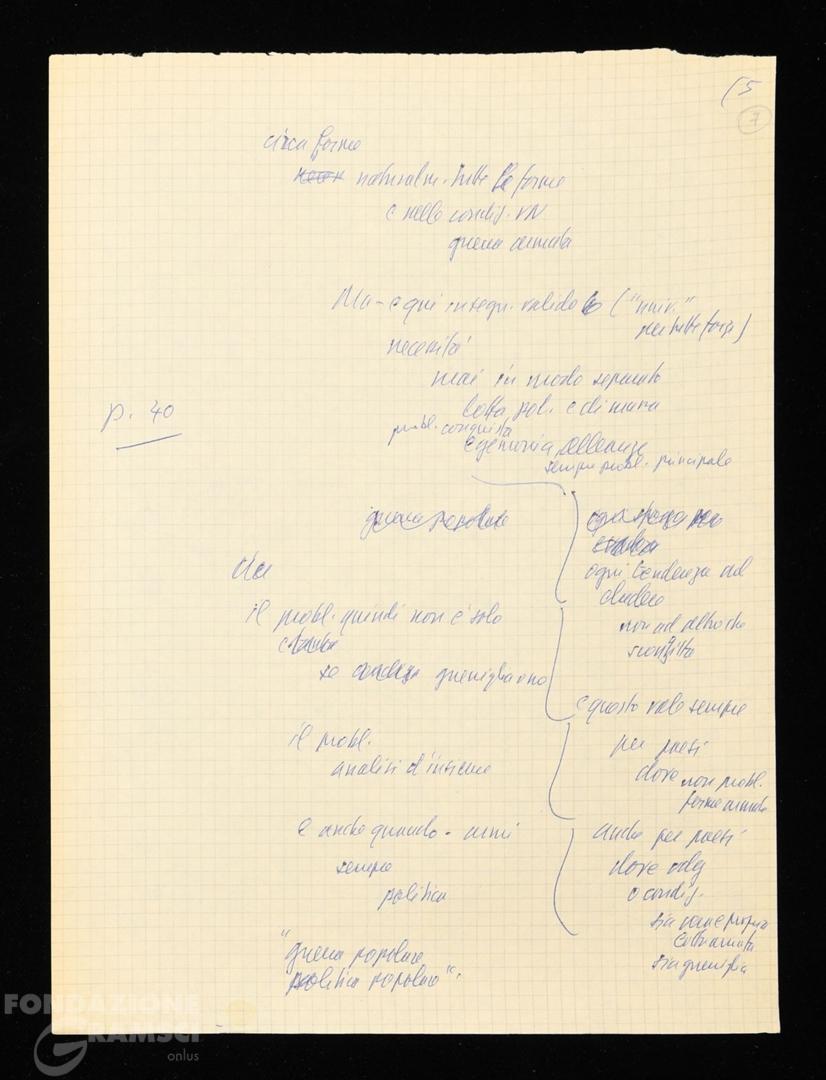 (5
7
circa forme
naturalm. tutte le forme
e nelle condiz. VN
guerra armata
Ma - e qui insegn. valido ("univ."
per tutte forze)
necessità
mai in modo separato
lotta pol. e di massa
p. 40
probl. conquista
egemonia alleanze
sempre probl. principale
guerra popolare
ogni tendenza ad
eludere
non ad altro che
sconfitta
da
il probl. quindi non è solo
se guerriglia o no
e questo vale sempre
il probl.
analisi d'insieme
per paesi
dove non probl.
forme armate
e anche quando - armi
sempre
politica
anche per paesi
dove
o condiz.
sia vera e propria
lotta armata
sia guerriglia
"guerra popolare
politica popolare".
FONDAZIONE
GRAMSCI
onlus